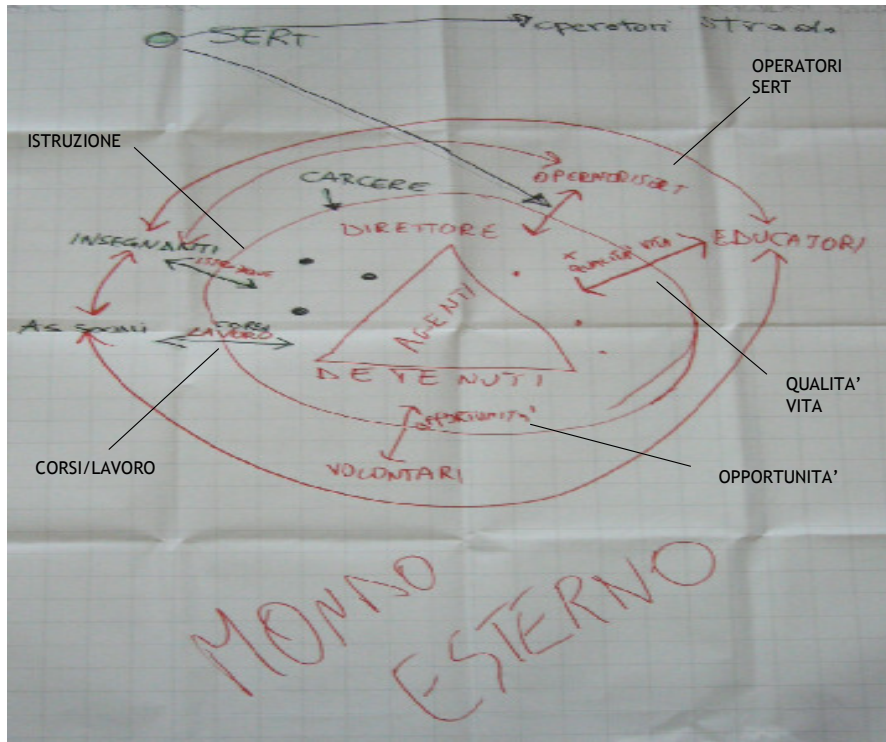 SERT
operatori strada
OPERATORI
SERT
ISTRUZIONE
CARCERE
OPERATORI SERT
DIRETTORE
INSEGNANTI
ISTRUZIONE
EDUCATORI
X
QUALITA' VITA
AGENTI
As sociali
CORSI
LAVORO
DETENUTI
QUALITA'
VITA
OPPORTUNITA'
VOLONTARI
CORSI/LAVORO
OPPORTUNITA'
MONDO
ESTERNO